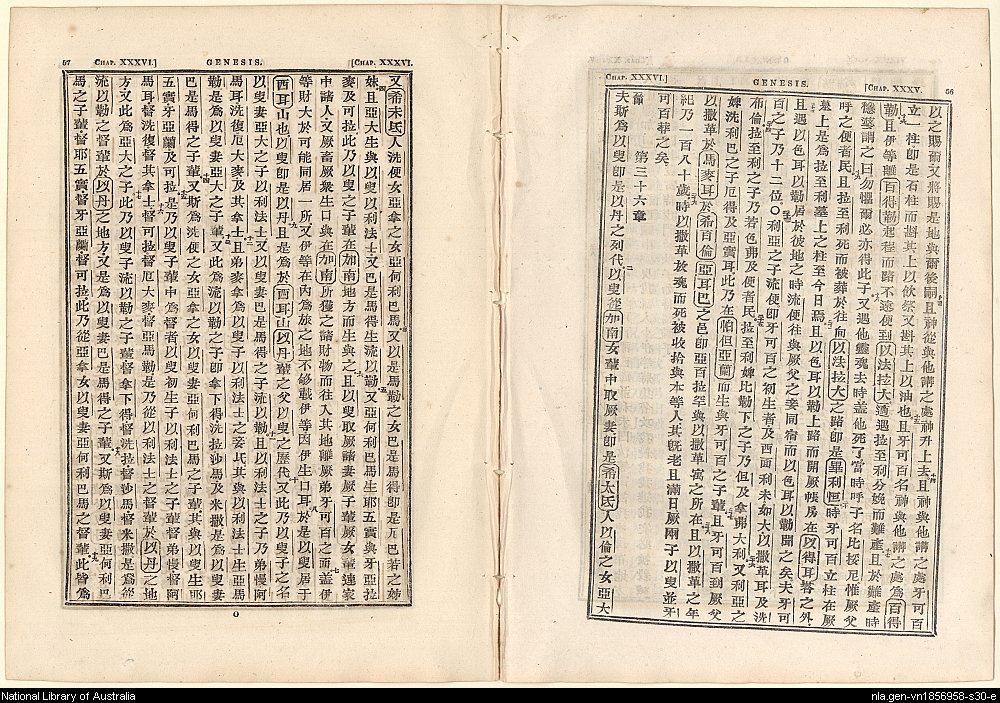 CHAP. XXXVI.]
GENESIS.
[CHAP. XXXV.
56
以之賜爾又將賜是地與爾後嗣且神從與他講之處神升上去且神與他講之處牙可百
立一柱即是石柱而斟其上以飲祭又斟其上以油也且牙可百名神與他講之處為百得
勒且伊等離百得勒起程而路不遠便到以法拉大遇拉至利分娩而難產且於難產時
穩婆謂之曰勿懼爾必亦得此子又遇他靈魂去時蓋他死了當時呼子名比挼尼惟厥父
呼之便者民且拉至利死而被葬於往向以法拉大之路即是畢利恒時牙可百立柱在厥
墓上是為拉至利墓上之柱至今日焉且以色耳以勒上路而開厥帳房在以得耳塔之外
且遇以色耳以勒居於彼地之時流便往與厥父之妾同宿而以色耳以勒聞之矣夫牙可
百之子乃十二位〇利亞之子流便即牙可百之初生者及西面利未如大以撒革耳及洗
布倫拉至利之子乃若色弗及便者民拉至利婢比勒下之子乃但及拿弗大利又利亞之
婢洗利巴之子厄得及亞實耳此乃在帕但亞蘭而生與牙可百之子輩且牙可百到厥父
以撒革於馬麥耳於希百倫亞耳巴之邑即亞百拉罕與以撒革寓之所在且以撒革之年
紀乃一百八十歲時以撒革放魂而死被收拾與本等人其既老且滿日厥兩子以叟並牙
可百葬之矣
第三十六章
夫斯為以叟即是以丹之列代以叟從加南女輩中取厥妻即是希太氏人以倫之女亞大
57
CHAP. XXXVI.]
GENESIS.
[CHAP. XXXVI.
又希未氏人洗便女亞拿之女亞何利巴馬又以是馬勒之女巴是馬得即是尼巴若之姊
妹且亞大生與以叟以利法士又巴是馬得生流以勒又亞何利巴馬生耶五實與牙亞拉
麥及可拉此乃以叟之子輩在加南地方而生與之且以叟取厥諸妻厥子輩厥女輩連家
中諸人又厥畜厥眾生口與在加南所獲之諸財物而往入其地離厥弟牙可百之面蓋伊
等財大於可能同居一所又伊等在內為旅之地不够載伊等因伊生口耳於是以叟居于
西耳山也以叟即是以丹且是為於西耳山以丹輩之父以叟之歷代又此乃以叟子之名
以叟妻亞大之子以利法士又以叟妻巴是馬得之子流以勒且以利法士之子乃弟慢阿
馬耳洗復厄大麥及其拿士且弟麥拿為以叟子以利法士之妾其與以利法士生亞馬
勒是為以叟妻亞大之子輩又此為流以勒之子即拿下得洗拉沙馬及米撒是為以叟妻
巴是馬得之子輩又斯為洗便之女亞拿之女以叟妻亞何利巴馬之子輩其與以叟生耶
五實牙亞蘭及可拉是乃以叟子輩中為督者以叟初生子以利法士之子輩督弟慢督阿
馬耳督洗復督其拿士督可拉督厄大麥督亞馬勒是乃從以利法士之督輩於以丹之地
方又此為亞大之子此乃以叟子流以勒之子輩督拿下得督洗拉督沙馬督米撒是為從
流以勒之督輩於以丹之地方又是為以叟妻巴是馬得之子輩又斯為以叟妻亞何利巴
馬之子輩督耶五實督牙亞蘭督可拉此乃從亞拿女以叟妻亞何利巴馬之督輩此皆為
O
National Library of Australia
nla.gen-vn1856958-s30-e